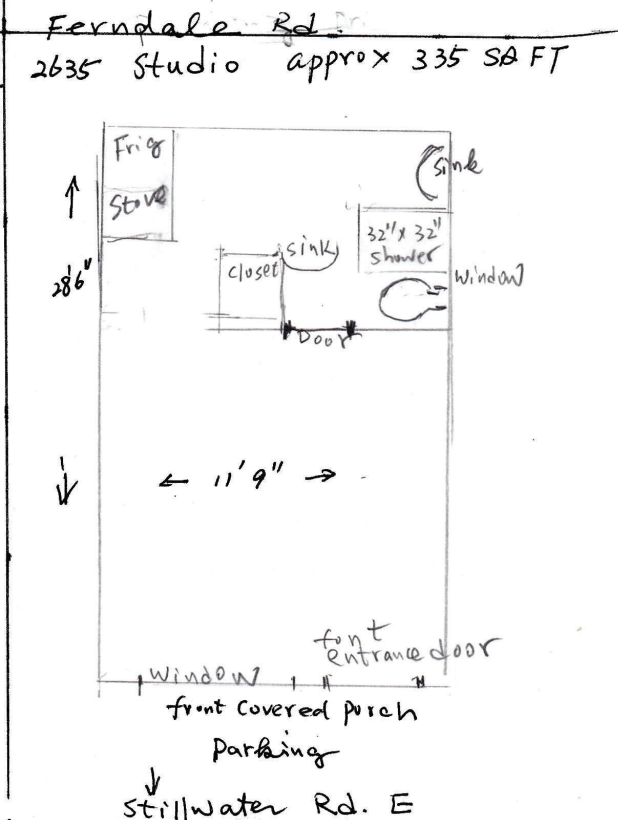 Ferndale Rd.
2635 Studio approx 335 SQ FT
Frig
Stove
Sink
sink
closet
32" x 32"
shower
Window
28'6"
Door
11' 9"
font
entrance door
Window
front covered porch
Parking
Stillwater Rd. E